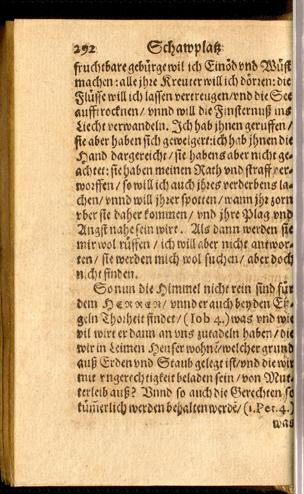 292 Schawplatz
fruchtbare gebürge wil ich Einöd vnd Wüst
machen: alle jhre Kreuter will ich dörren: die
Flüsse will ich lassen vertreugen/vnd die See
aufftrocknen/ vnnd will die Finsternuß ins
Liecht verwandeln. Jch hab jhnen geruffen/
sie aber haben sich geweigert: ich hab jhnen die
Hand dargereicht/ sie habens aber nicht ge-
achtet: sie haben meinen Rath vnd straff ver-
worffen/ so will ich auch jhres verderbens la-
chen/ vnnd will jhrer spotten/ wann jhr zorn
vber sie daher kommen/ vnd jhre Plag vnd
Angst nahe sein wirt. Als dann werden sie
mir wol rüffen/ ich will aber nicht antwor-
ten/ sie werden mich wol suchen/ aber doch
nicht finden.
So nun die Himmel nicht rein sind für
dem HERREN/ vnnd er auch bey den En-
geln Thorheit findet/ (Iob 4.) was vnd wie
vil wirt er dann an vns zutadeln haben/ die
wir in Leimen Heuser wohnē/ welcher grund
auß Erden vnd Staub gelegt ist/ vnd die wir
mit vngerechtigkeit beladen sein/ von Mut-
terleib auß? Vnnd so auch die Gerechten so
tüm̄erlich werden behalten werdē/ (1. Pet. 4.)
was